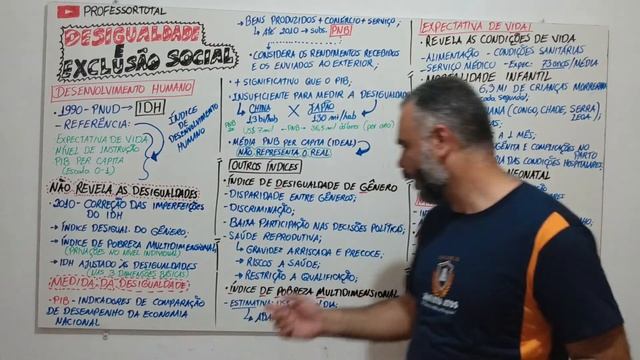 PROFESSORTOTAL
DESIGUALDADE
E
EXCLUSÃO SOCIAL
DESENVOLVIMENTO HUMANO
- 1990 - PNUD → IDH
- REFERÊNCIA:
EXPECTATIVA DE VIDA
NÍVEL DE INSTRUÇÃO
PIB PER CAPITA
(Escala 0-1)
ÍNDICE DE DESENVOLVIMENTO HUMANO
NÃO REVELA AS DESIGUALDADES
- 2010 - CORREÇÃO DAS IMPERFEIÇÕES
DO IDH
- ÍNDICE DESIGUAL DO GÊNERO;
- ÍNDICE DE POBREZA MULTIDIMENSIONAL;
(PRIVAÇÕES NO NÍVEL INDIVIDUAL)
- IDH AJUSTADO ÀS DESIGUALDADES
(NAS 3 DIMENSÕES BÁSICAS)
MEDIDA DA DESIGUALDADE
- PIB - INDICADORES DE COMPARAÇÃO
DE DESEMPENHO DA ECONOMIA
NACIONAL
- BENS PRODUZIDOS + COMÉRCIO + SERVIÇO;
↳ Até 2010 → subs. PNB
- CONSIDERA OS RENDIMENTOS RECEBIDOS
E OS ENVIADOS AO EXTERIOR;
- + SIGNIFICATIVO QUE O PIB;
- INSUFICIENTE PARA MEDIR A DESIGUALDADE
↳ CHINA X JAPÃO
1,3 bi/hab 130 mi/hab
(por ano)
- MÉDIA PNB PER CAPITA (IDEAL)
NÃO REPRESENTA O REAL
OUTROS ÍNDICES
• ÍNDICE DE DESIGUALDADE DE GÊNERO
- DISPARIDADE ENTRE GÊNEROS;
- DISCRIMINAÇÃO;
- BAIXA PARTICIPAÇÃO NAS DECISÕES POLÍTICAS;
- SAÚDE REPRODUTIVA;
↳ GRAVIDEZ ARRISCADA E PRECOCE;
↳ RISCOS A SAÚDE;
↳ RESTRIÇÃO A QUALIFICAÇÃO;
• ÍNDICE DE POBREZA MULTIDIMENSIONAL
- ESTIMATIVA
EXPECTATIVA DE VIDA
- REVELA AS CONDIÇÕES DE VIDA
- ALIMENTAÇÃO - CONDIÇÕES SANITÁRIAS
- SERVIÇO MÉDICO - Expec. 73 anos/MÉDIA
MORTALIDADE INFANTIL
6,3 MI DE CRIANÇAS MORRERAM
(CONGO, CHADE, SERRA
LEOA)
A 1 MÊS;
E COMPLICAÇÕES NO
PARTO
DAS CONDIÇÕES HOSPITALARES
NEONATAL